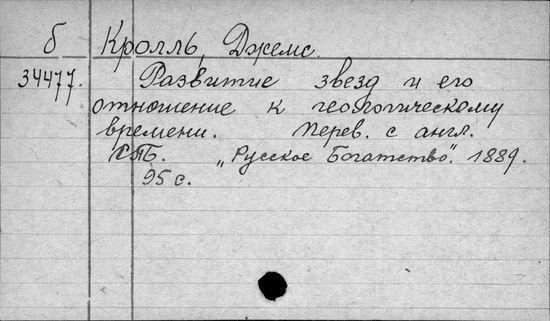 б Кролль, Джемс.
34477. Развитие звезд и его
отношение к геологическому
времени. Перев. с англ.
СПБ. „Русское Богатство". 1889.
95 с.